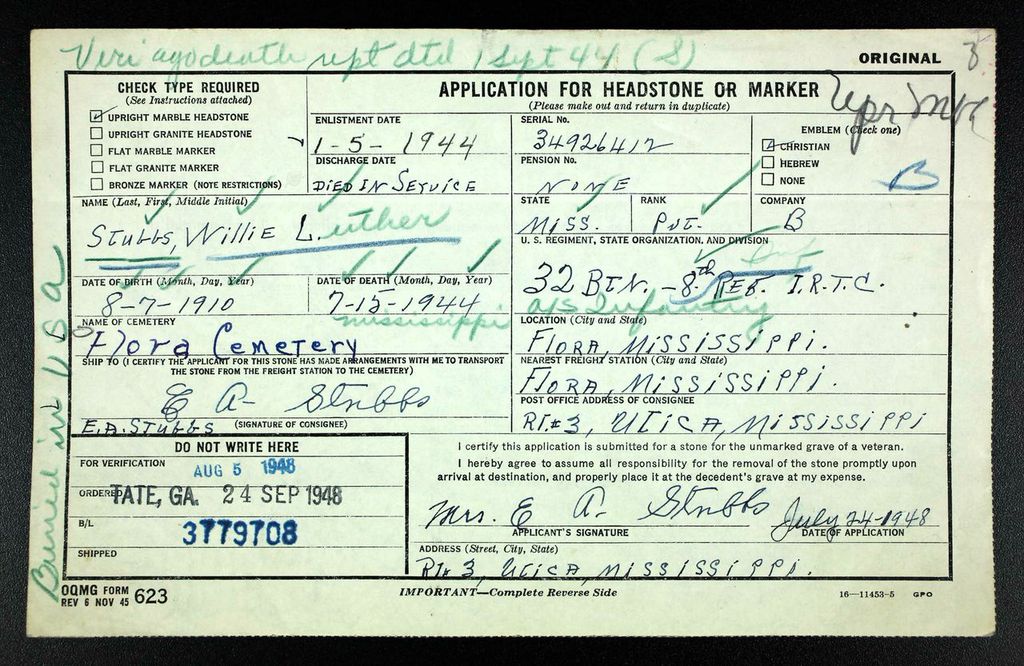 Veri ago death rept dtd 1 Sept 44 (S)
ORIGINAL
3
CHECK TYPE REQUIRED
(See Instructions attached)
UPRIGHT MARBLE HEADSTONE
UPRIGHT GRANITE HEADSTONE
FLAT MARBLE MARKER
FLAT GRANITE MARKER
BRONZE MARKER (NOTE RESTRICTIONS)
APPLICATION FOR HEADSTONE OR MARKER
(Please make out and return in duplicate)
ENLISTMENT DATE
1-5-1944
DISCHARGE DATE
DIED IN SERVICE
SERIAL No.
34926412
PENSION No.
NONE
EMBLEM (Check one)
CHRISTIAN
HEBREW
NONE
B
NAME (Last, First, Middle Initial)
STUBBS, Willie L.uther
STATE
MISS.
RANK
PVT.
COMPANY
B
U. S. REGIMENT, STATE ORGANIZATION, AND DIVISION
32 BTN. - 8th REG. I.R.T.C.
Inf
a/s Infantry
DATE OF BIRTH (Month, Day, Year)
8-7-1910
DATE OF DEATH (Month, Day, Year)
7-15-1944
mississippi
NAME OF CEMETERY
Flora Cemetery
LOCATION (City and State)
FLORA, MISSISSIPPI.
SHIP TO (I CERTIFY THE APPLICANT FOR THIS STONE HAS MADE ARRANGEMENTS WITH ME TO TRANSPORT
THE STONE FROM THE FREIGHT STATION TO THE CEMETERY)
E A- Stubbs
E.A. STUBBS (SIGNATURE OF CONSIGNEE)
NEAREST FREIGHT STATION (City and State)
FLORA, MISSISSIPPI.
POST OFFICE ADDRESS OF CONSIGNEE
RT.#3, UTICA, MISSISSIPPI
DO NOT WRITE HERE
FOR VERIFICATION
AUG 5 1948
ORDERED
TATE, GA. 24 SEP 1948
B/L
3779708
SHIPPED
I certify this application is submitted for a stone for the unmarked grave of a veteran.
I hereby agree to assume all responsibility for the removal of the stone promptly upon
arrival at destination, and properly place it at the decedent's grave at my expense.
Mrs. E A- Stubbs July 24-1948
APPLICANT'S SIGNATURE DATE OF APPLICATION
ADDRESS (Street, City, State)
RT# 3, UTICA, MISSISSIPPI.
Buried in U S A
OQMG FORM
REV 6 NOV 45 623
IMPORTANT—Complete Reverse Side
16—11453-5 GPO